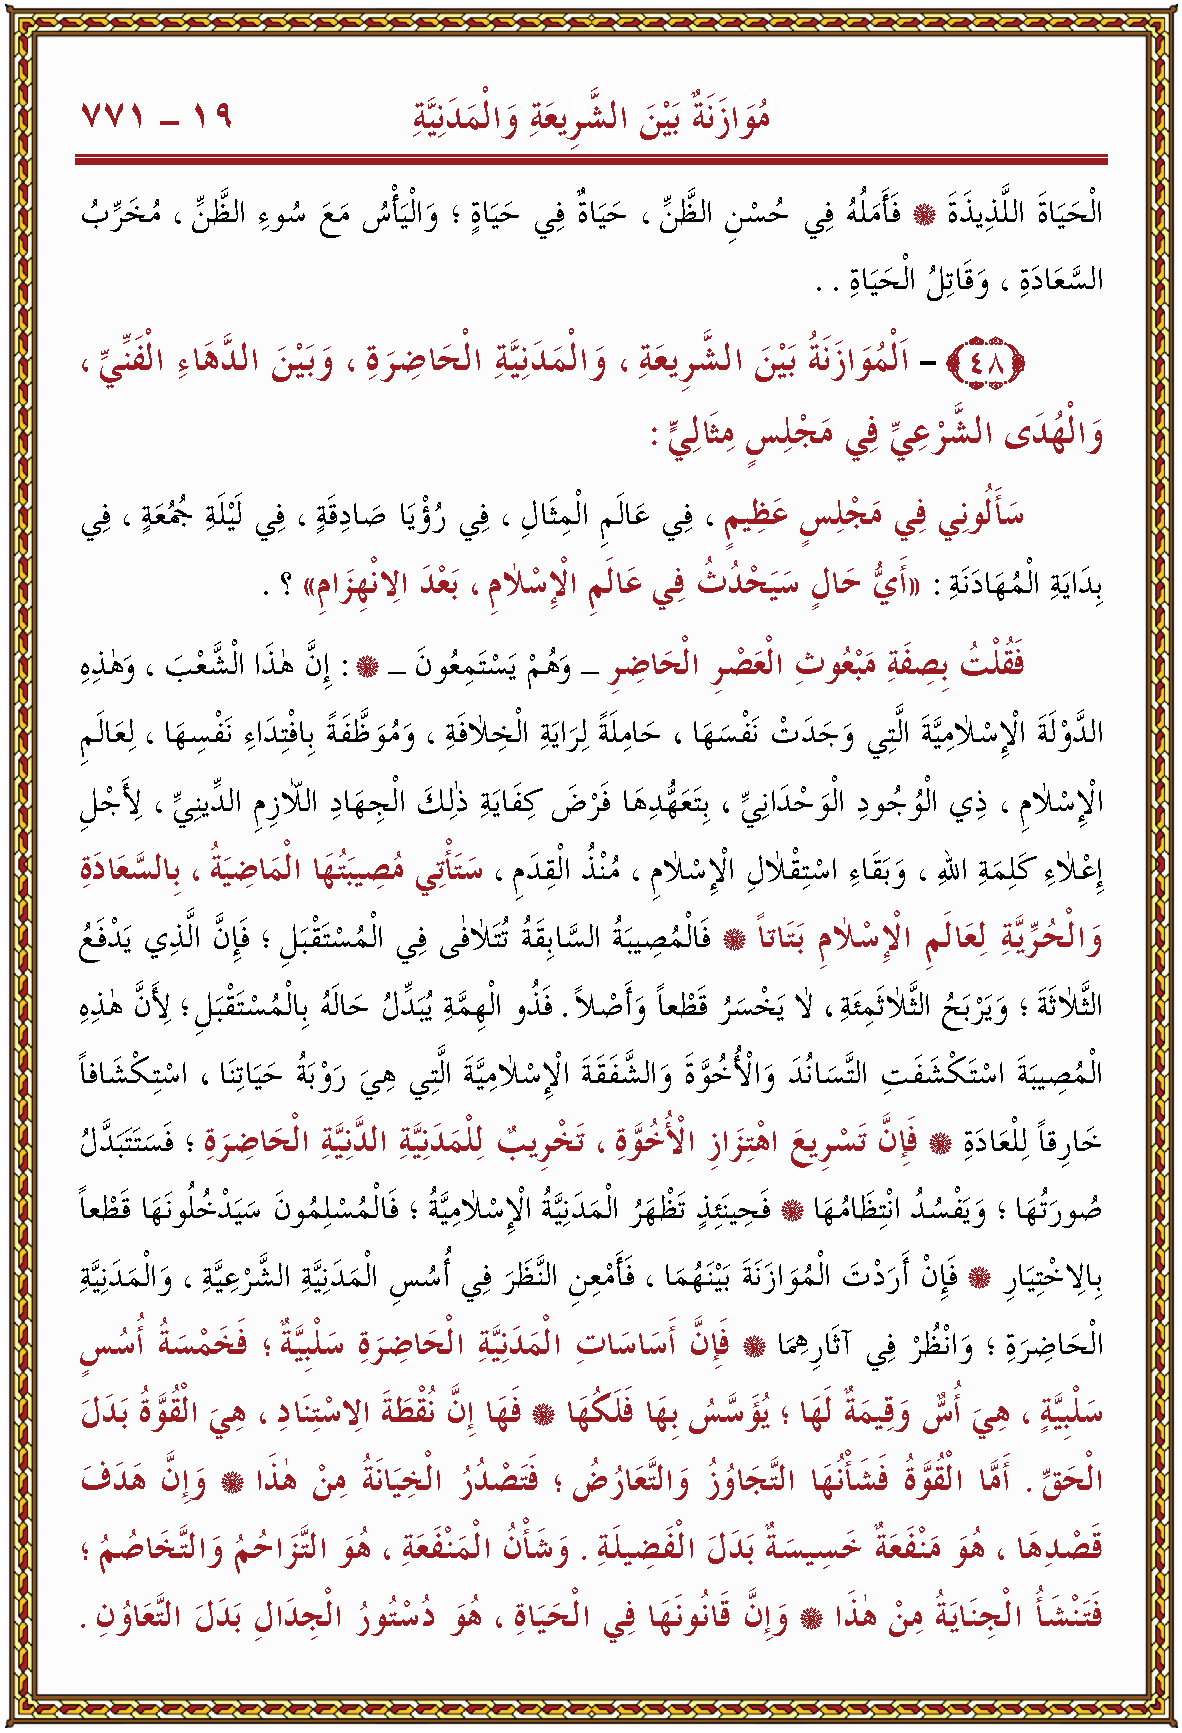 مُوَازَنَةٌ بَيْنَ الشَّرِيعَةِ وَالْمَدَنِيَّةِ ١٩ – ٧٧١
الْحَيَاةَ اللَّذِيذَةَ ۞ فَأَمَلُهُ فِي حُسْنِ الظَّنِّ ، حَيَاةٌ فِي حَيَاةٍ ؛ وَالْيَأْسُ مَعَ سُوءِ الظَّنِّ ، مُخَرِّبُ
السَّعَادَةِ ، وَقَاتِلُ الْحَيَاةِ . .
﴿٤٨﴾ – اَلْمُوَازَنَةُ بَيْنَ الشَّرِيعَةِ ، وَالْمَدَنِيَّةِ الْحَاضِرَةِ ، وَبَيْنَ الدَّهَاءِ الْفَنِّيِّ ،
وَالْهُدَى الشَّرْعِيِّ فِي مَجْلِسٍ مِثَالِيٍّ :
سَأَلُونِي فِي مَجْلِسٍ عَظِيمٍ ، فِي عَالَمِ الْمِثَالِ ، فِي رُؤْيَا صَادِقَةٍ ، فِي لَيْلَةِ جُمُعَةٍ ، فِي
بِدَايَةِ الْمُهَادَنَةِ : «أَيُّ حَالٍ سَيَحْدُثُ فِي عَالَمِ الْإِسْلَامِ ، بَعْدَ الِانْهِزَامِ» ؟ .
فَقُلْتُ بِصِفَةِ مَبْعُوثِ الْعَصْرِ الْحَاضِرِ – وَهُمْ يَسْتَمِعُونَ – ۞ : إِنَّ هٰذَا الْشَّعْبَ ، وَهٰذِهِ
الدَّوْلَةَ الْإِسْلَامِيَّةَ الَّتِي وَجَدَتْ نَفْسَهَا ، حَامِلَةً لِرَايَةِ الْخِلَافَةِ ، وَمُوَظَّفَةً بِافْتِدَاءِ نَفْسِهَا ، لِعَالَمِ
الْإِسْلَامِ ، ذِي الْوُجُودِ الْوَحْدَانِيِّ ، بِتَعَهُّدِهَا فَرْضَ كِفَايَةِ ذٰلِكَ الْجِهَادِ اللَّازِمِ الدِّينِيِّ ، لِأَجْلِ
إِعْلَاءِ كَلِمَةِ اللهِ ، وَبَقَاءِ اسْتِقْلَالِ الْإِسْلَامِ ، مُنْذُ الْقِدَمِ ، سَتَأْتِي مُصِيبَتُهَا الْمَاضِيَةُ ، بِالسَّعَادَةِ
وَالْحُرِّيَّةِ لِعَالَمِ الْإِسْلَامِ بَتَاتاً ۞ فَالْمُصِيبَةُ السَّابِقَةُ تُتَلَافٰى فِي الْمُسْتَقْبَلِ ؛ فَإِنَّ الَّذِي يَدْفَعُ
الثَّلَاثَةَ ؛ وَيَرْبَحُ الثَّلَاثَمِئَةِ ، لَا يَخْسَرُ قَطْعاً وَأَصْلاً . فَذُو الْهِمَّةِ يُبَدِّلُ حَالَهُ بِالْمُسْتَقْبَلِ ؛ لِأَنَّ هٰذِهِ
الْمُصِيبَةَ اسْتَكْشَفَتِ التَّسَانُدَ وَالْأُخُوَّةَ وَالشَّفَقَةَ الْإِسْلَامِيَّةَ الَّتِي هِيَ رَوْبَةُ حَيَاتِنَا ، اسْتِكْشَافاً
خَارِقاً لِلْعَادَةِ ۞ فَإِنَّ تَسْرِيعَ اهْتِزَازِ الْأُخُوَّةِ ، تَخْرِيبٌ لِلْمَدَنِيَّةِ الدَّنِيَّةِ الْحَاضِرَةِ ؛ فَسَتَتَبَدَّلُ
صُورَتُهَا ؛ وَيَفْسُدُ انْتِظَامُهَا ۞ فَحِينَئِذٍ تَظْهَرُ الْمَدَنِيَّةُ الْإِسْلَامِيَّةُ ؛ فَالْمُسْلِمُونَ سَيَدْخُلُونَهَا قَطْعاً
بِالِاخْتِيَارِ ۞ فَإِنْ أَرَدْتَ الْمُوَازَنَةَ بَيْنَهُمَا ، فَأَمْعِنِ النَّظَرَ فِي أُسُسِ الْمَدَنِيَّةِ الشَّرْعِيَّةِ ، وَالْمَدَنِيَّةِ
الْحَاضِرَةِ ؛ وَانْظُرْ فِي آثَارِهِمَا ۞ فَإِنَّ أَسَاسَاتِ الْمَدَنِيَّةِ الْحَاضِرَةِ سَلْبِيَّةٌ ؛ فَخَمْسَةُ أُسُسٍ
سَلْبِيَّةٍ ، هِيَ أُسٌّ وَقِيمَةٌ لَهَا ؛ يُؤَسَّسُ بِهَا فَلَكُهَا ۞ فَهَا إِنَّ نُقْطَةَ الِاسْتِنَادِ ، هِيَ الْقُوَّةُ بَدَلَ
الْحَقِّ . أَمَّا الْقُوَّةُ فَشَأْنُهَا التَّجَاوُزُ وَالتَّعَارُضُ ؛ فَتَصْدُرُ الْخِيَانَةُ مِنْ هٰذَا ۞ وَإِنَّ هَدَفَ
قَصْدِهَا ، هُوَ مَنْفَعَةٌ خَسِيسَةٌ بَدَلَ الْفَضِيلَةِ . وَشَأْنُ الْمَنْفَعَةِ ، هُوَ التَّزَاحُمُ وَالتَّخَاصُمُ ؛
فَتَنْشَأُ الْجِنَايَةُ مِنْ هٰذَا ۞ وَإِنَّ قَانُونَهَا فِي الْحَيَاةِ ، هُوَ دُسْتُورُ الْجِدَالِ بَدَلَ التَّعَاوُنِ .